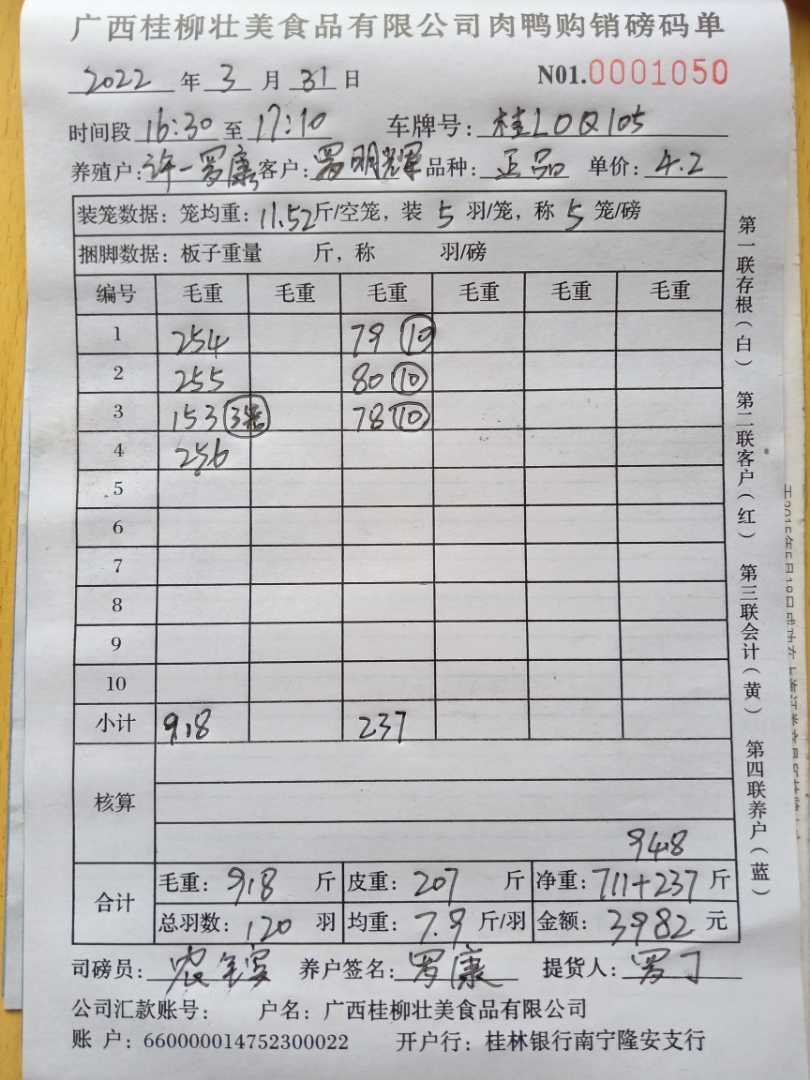 广西桂柳壮美食品有限公司肉鸭购销磅码单
2022 年 3 月 31 日 N01.0001050
时间段 16:30 至 17:10 车牌号: 桂L0Q105
养殖户: 许一罗康 客户: 罗明辉 品种: 正品 单价: 4.2
装笼数据: 笼均重: 11.52 斤/空笼, 装 5 羽/笼, 称 5 笼/磅
捆脚数据: 板子重量 斤, 称 羽/磅
编号 毛重 毛重 毛重 毛重 毛重 毛重
1 254 79 10
2 255 80 10
3 153 3笼 78 10
4 256
5
6
7
8
9
10
小计 918 237
核算
948
合计
毛重: 918 斤 皮重: 207 斤 净重: 711+237 斤
总羽数: 120 羽 均重: 7.9 斤/羽 金额: 3982 元
司磅员: 农 养户签名: 罗康 提货人: 罗丁
公司汇款账号: 户名: 广西桂柳壮美食品有限公司
账 户: 660000014752300022 开户行: 桂林银行南宁隆安支行
第一联存根(白) 第二联客户(红) 第三联会计(黄) 第四联养户(蓝)